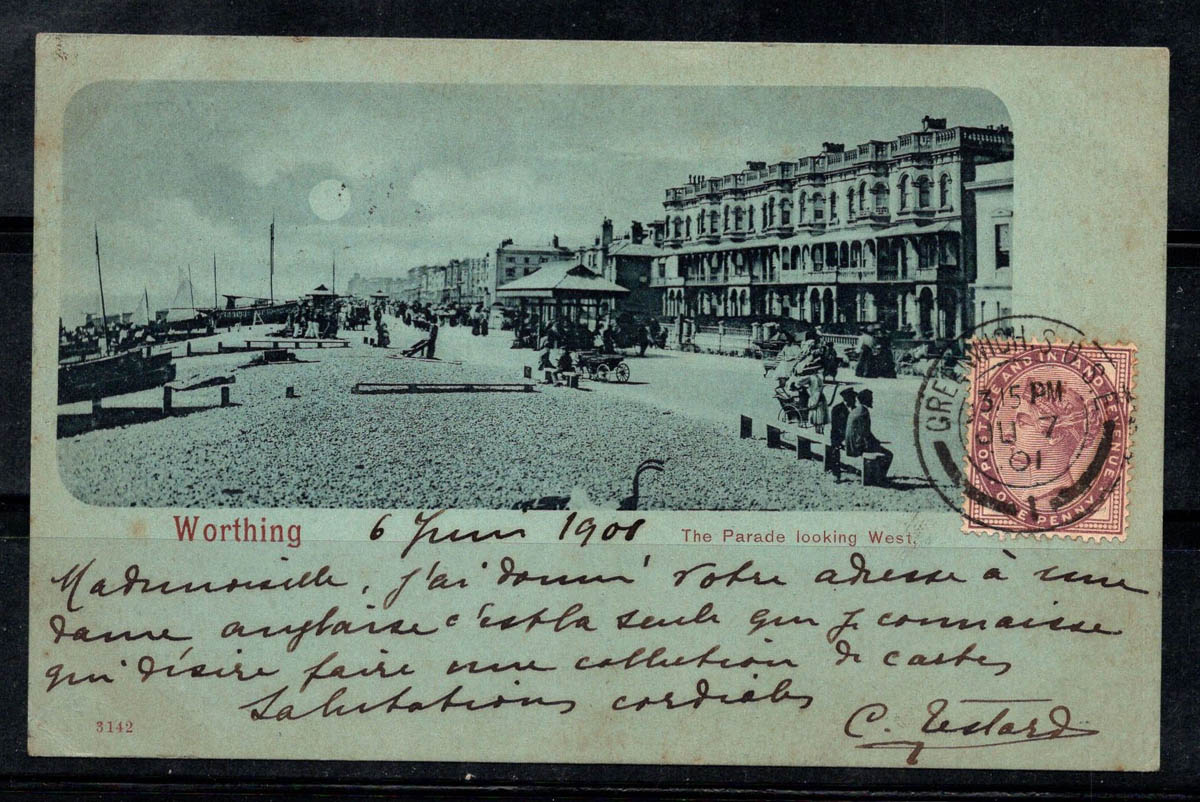 Worthing 6 Juin 1901 The Parade looking West.
Mademoiselle, j'ai donné votre adresse à une
dame anglaise c'est la seule que je connaisse
qui désire faire une collection de cartes
Salutations cordiales
C. Testard
3142
GREENWICH S.O.S.E.
3 15 PM
JU 7
01
1
POSTAGE AND INLAND REVENUE
ONE PENNY